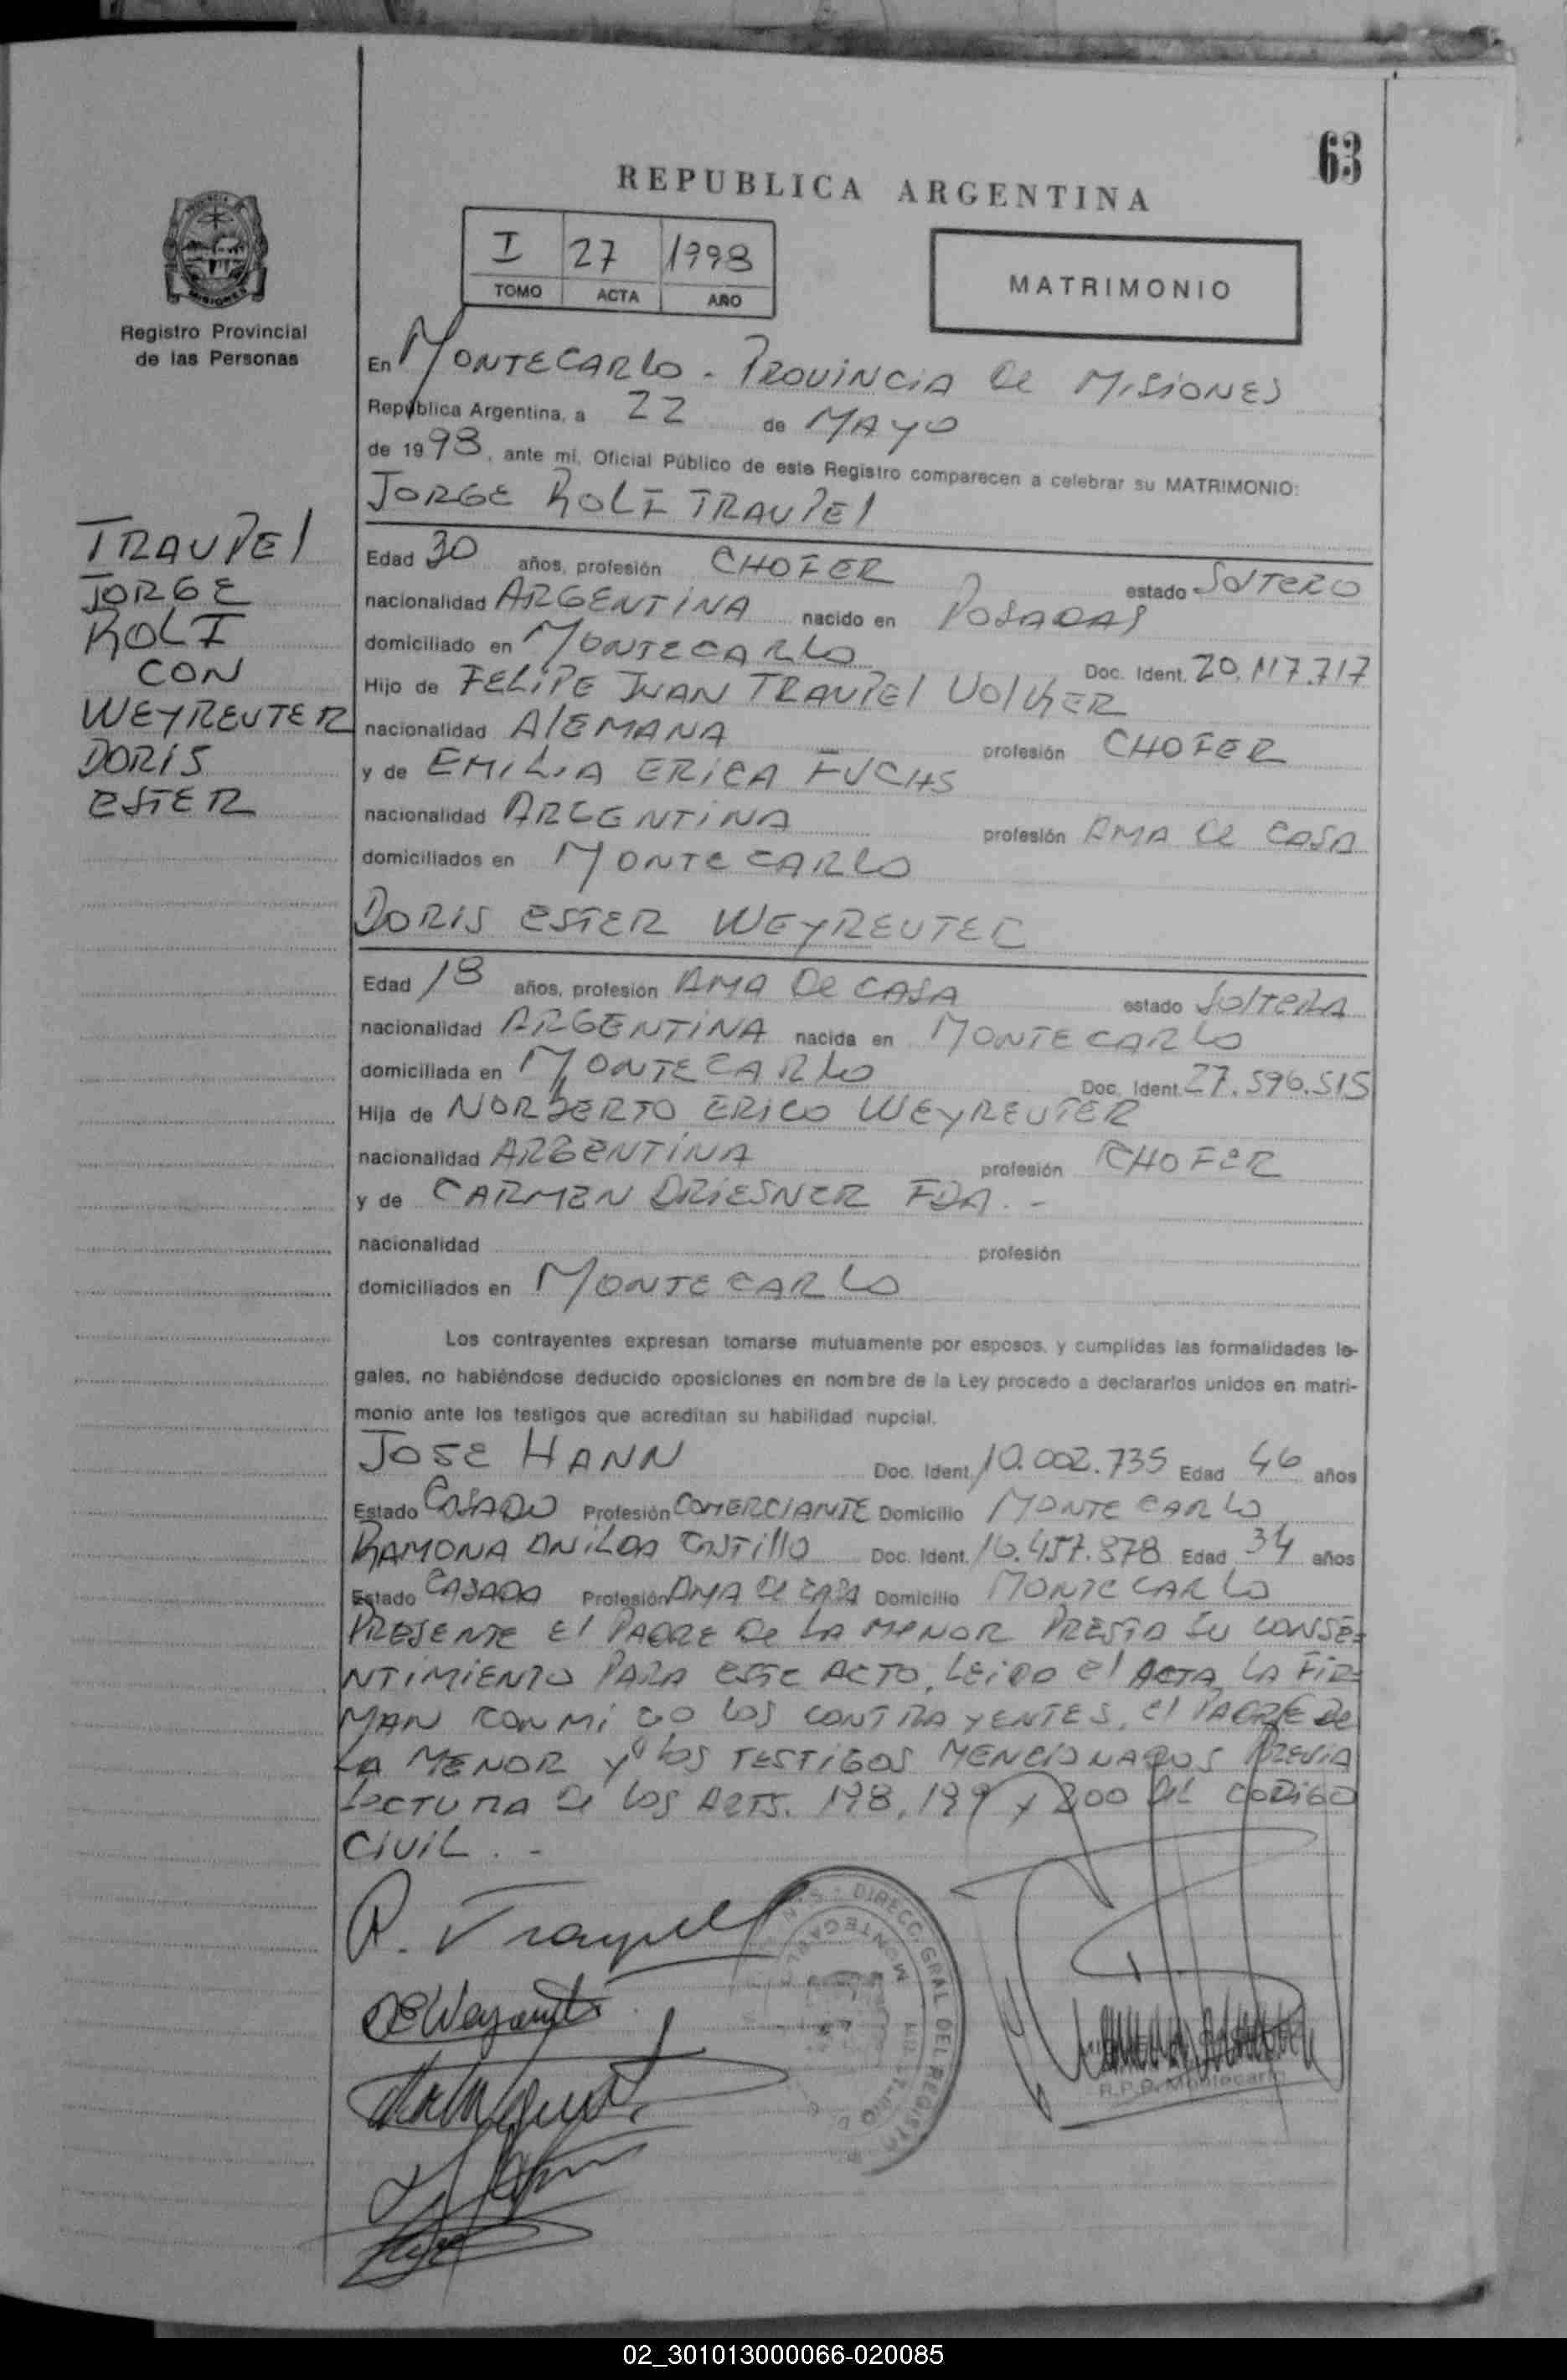 63
REPUBLICA ARGENTINA
I 27 1998
TOMO ACTA AÑO
MATRIMONIO
Registro Provincial
de las Personas
En MONTECARLO - PROVINCIA DE MISIONES
República Argentina, a 22 de MAYO
de 1998, ante mí, Oficial Público de este Registro comparecen a celebrar su MATRIMONIO:
JORGE ROLF TRAUPEL
TRAUPEL
JORGE
ROLF
CON
WEYREUTER
DORIS
ESTER
Edad 30 años, profesión CHOFER estado SOLTERO
nacionalidad ARGENTINA nacido en POSADAS
domiciliado en MONTECARLO Doc. Ident. 20.117.717
Hijo de FELIPE JUAN TRAUPEL VOLKER
nacionalidad ALEMANA profesión CHOFER
y de EMILIA ERICA FUCHS
nacionalidad ARGENTINA profesión AMA DE CASA
domiciliados en MONTECARLO
DORIS ESTER WEYREUTER
Edad 18 años, profesión AMA DE CASA estado SOLTERA
nacionalidad ARGENTINA nacida en MONTECARLO
domiciliada en MONTECARLO Doc. Ident. 27.596.515
Hija de NORBERTO ERICO WEYREUTER
nacionalidad ARGENTINA profesión CHOFER
y de CARMEN DRIESNER FDA. -
nacionalidad profesión
domiciliados en MONTECARLO
Los contrayentes expresan tomarse mutuamente por esposos, y cumplidas las formalidades le-
gales, no habiéndose deducido oposiciones en nombre de la Ley procedo a declararlos unidos en matri-
monio ante los testigos que acreditan su habilidad nupcial.
JOSE HANN Doc. Ident. 10.002.735 Edad 46 años
Estado CASADO Profesión COMERCIANTE Domicilio MONTECARLO
RAMONA ANILDA CASTILLO Doc. Ident. 16.457.878 Edad 34 años
Estado CASADA Profesión AMA DE CASA Domicilio MONTECARLO
PRESENTE EL PADRE DE LA MENOR PRESTA SU CONSE=
NTIMIENTO PARA ESTE ACTO, LEIDO EL ACTA, LA FIR=
MAN CONMIGO LOS CONTRAYENTES, EL PADRE DE
LA MENOR Y LOS TESTIGOS MENCIONADOS PREVIA
LECTURA DE LOS ARTS. 198, 199 Y 200 DEL CODIGO
CIVIL. -
R. Traupel
DIRECC. GRAL DEL REGISTRO
MONTECARLO
R.P.P. Montecarlo
02_301013000066-020085